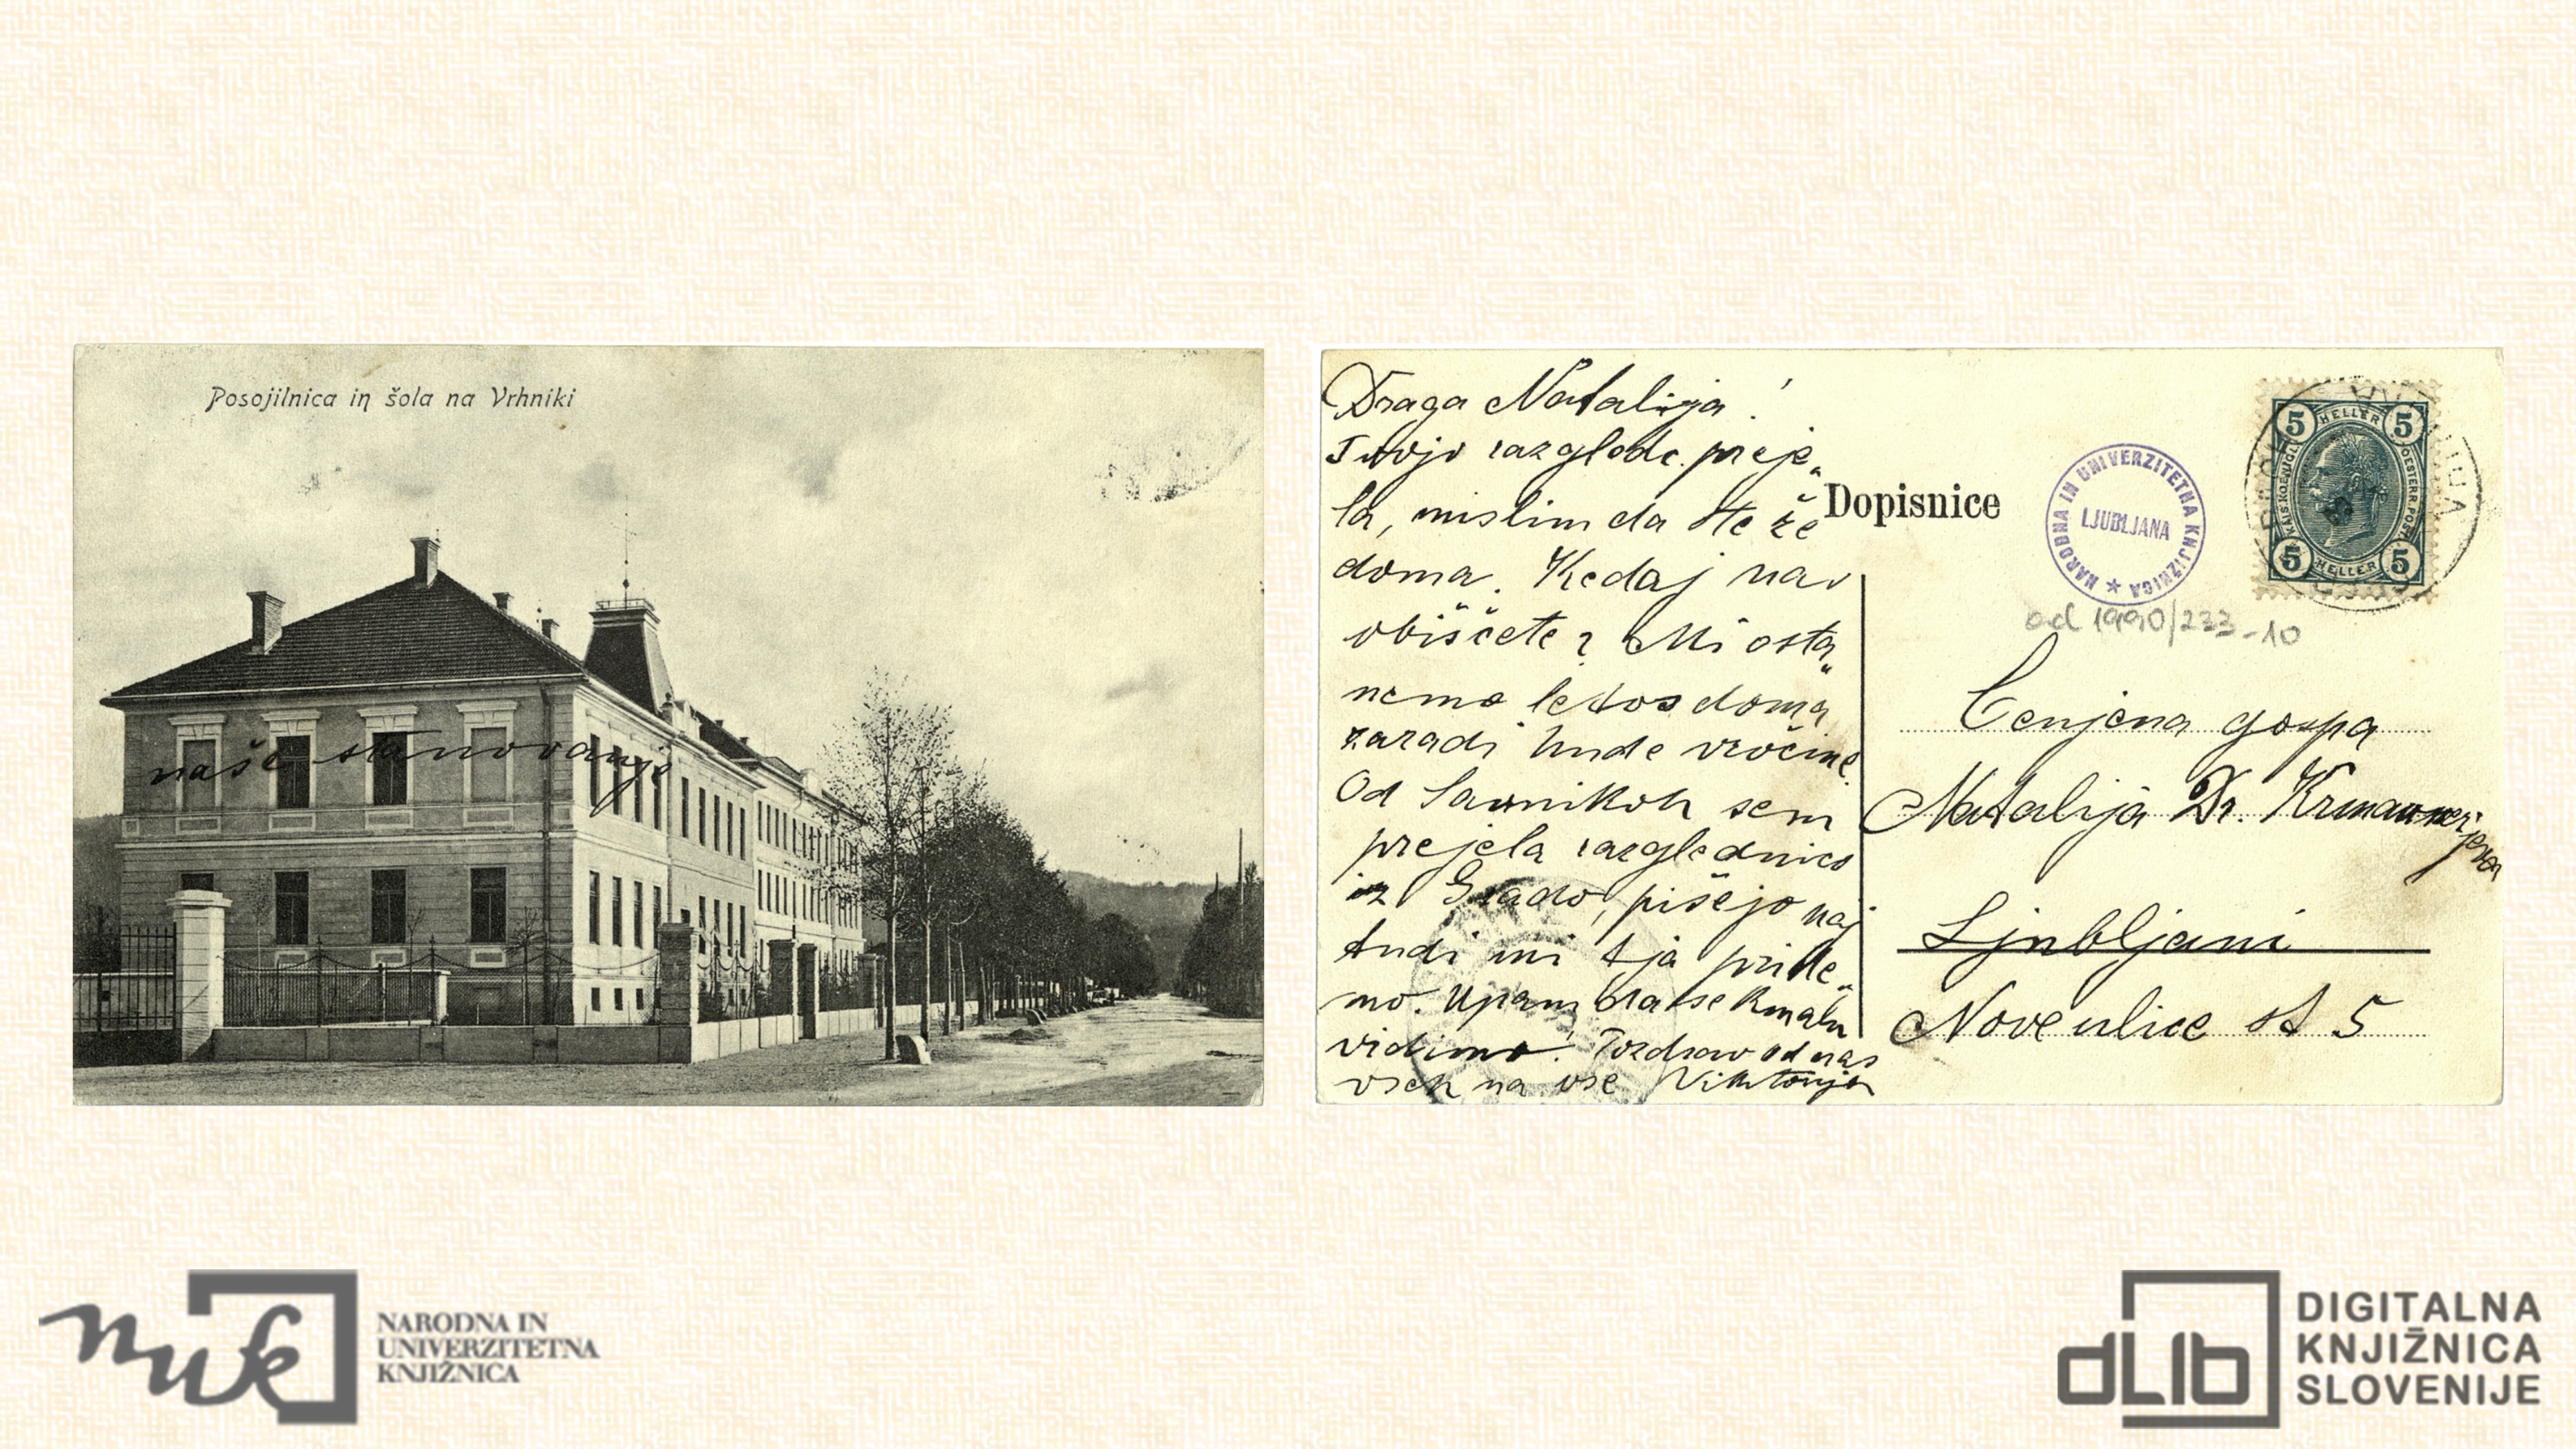 Posojilnica in šola na Vrhniki
naše stanovanje
Draga Natalija!
Tvojo razgledc. preje„
la, mislim da ste že
doma. Kedaj nas
obiščete? Mi osta„
nemo letos doma
zaradi hude vročine.
Od Savnikoh sem
prejela razglednico
iz Grado, pišejo naj
tudi mi tja pride„
mo. Upam da se kmalu
vidimo. Pozdrav od nas
vseh na vse Viktorija
Dopisnice
NARODNA IN UNIVERZITETNA KNJIŽNICA
LJUBLJANA
5 HELLER 5
5 HELLER 5
od 1990/233-10
Cenjena gospa
Natalija Dr.
Ljubljani
Nove ulice št 5
nuk
NARODNA IN
UNIVERZITETNA
KNJIŽNICA
dLib
DIGITALNA
KNJIŽNICA
SLOVENIJE